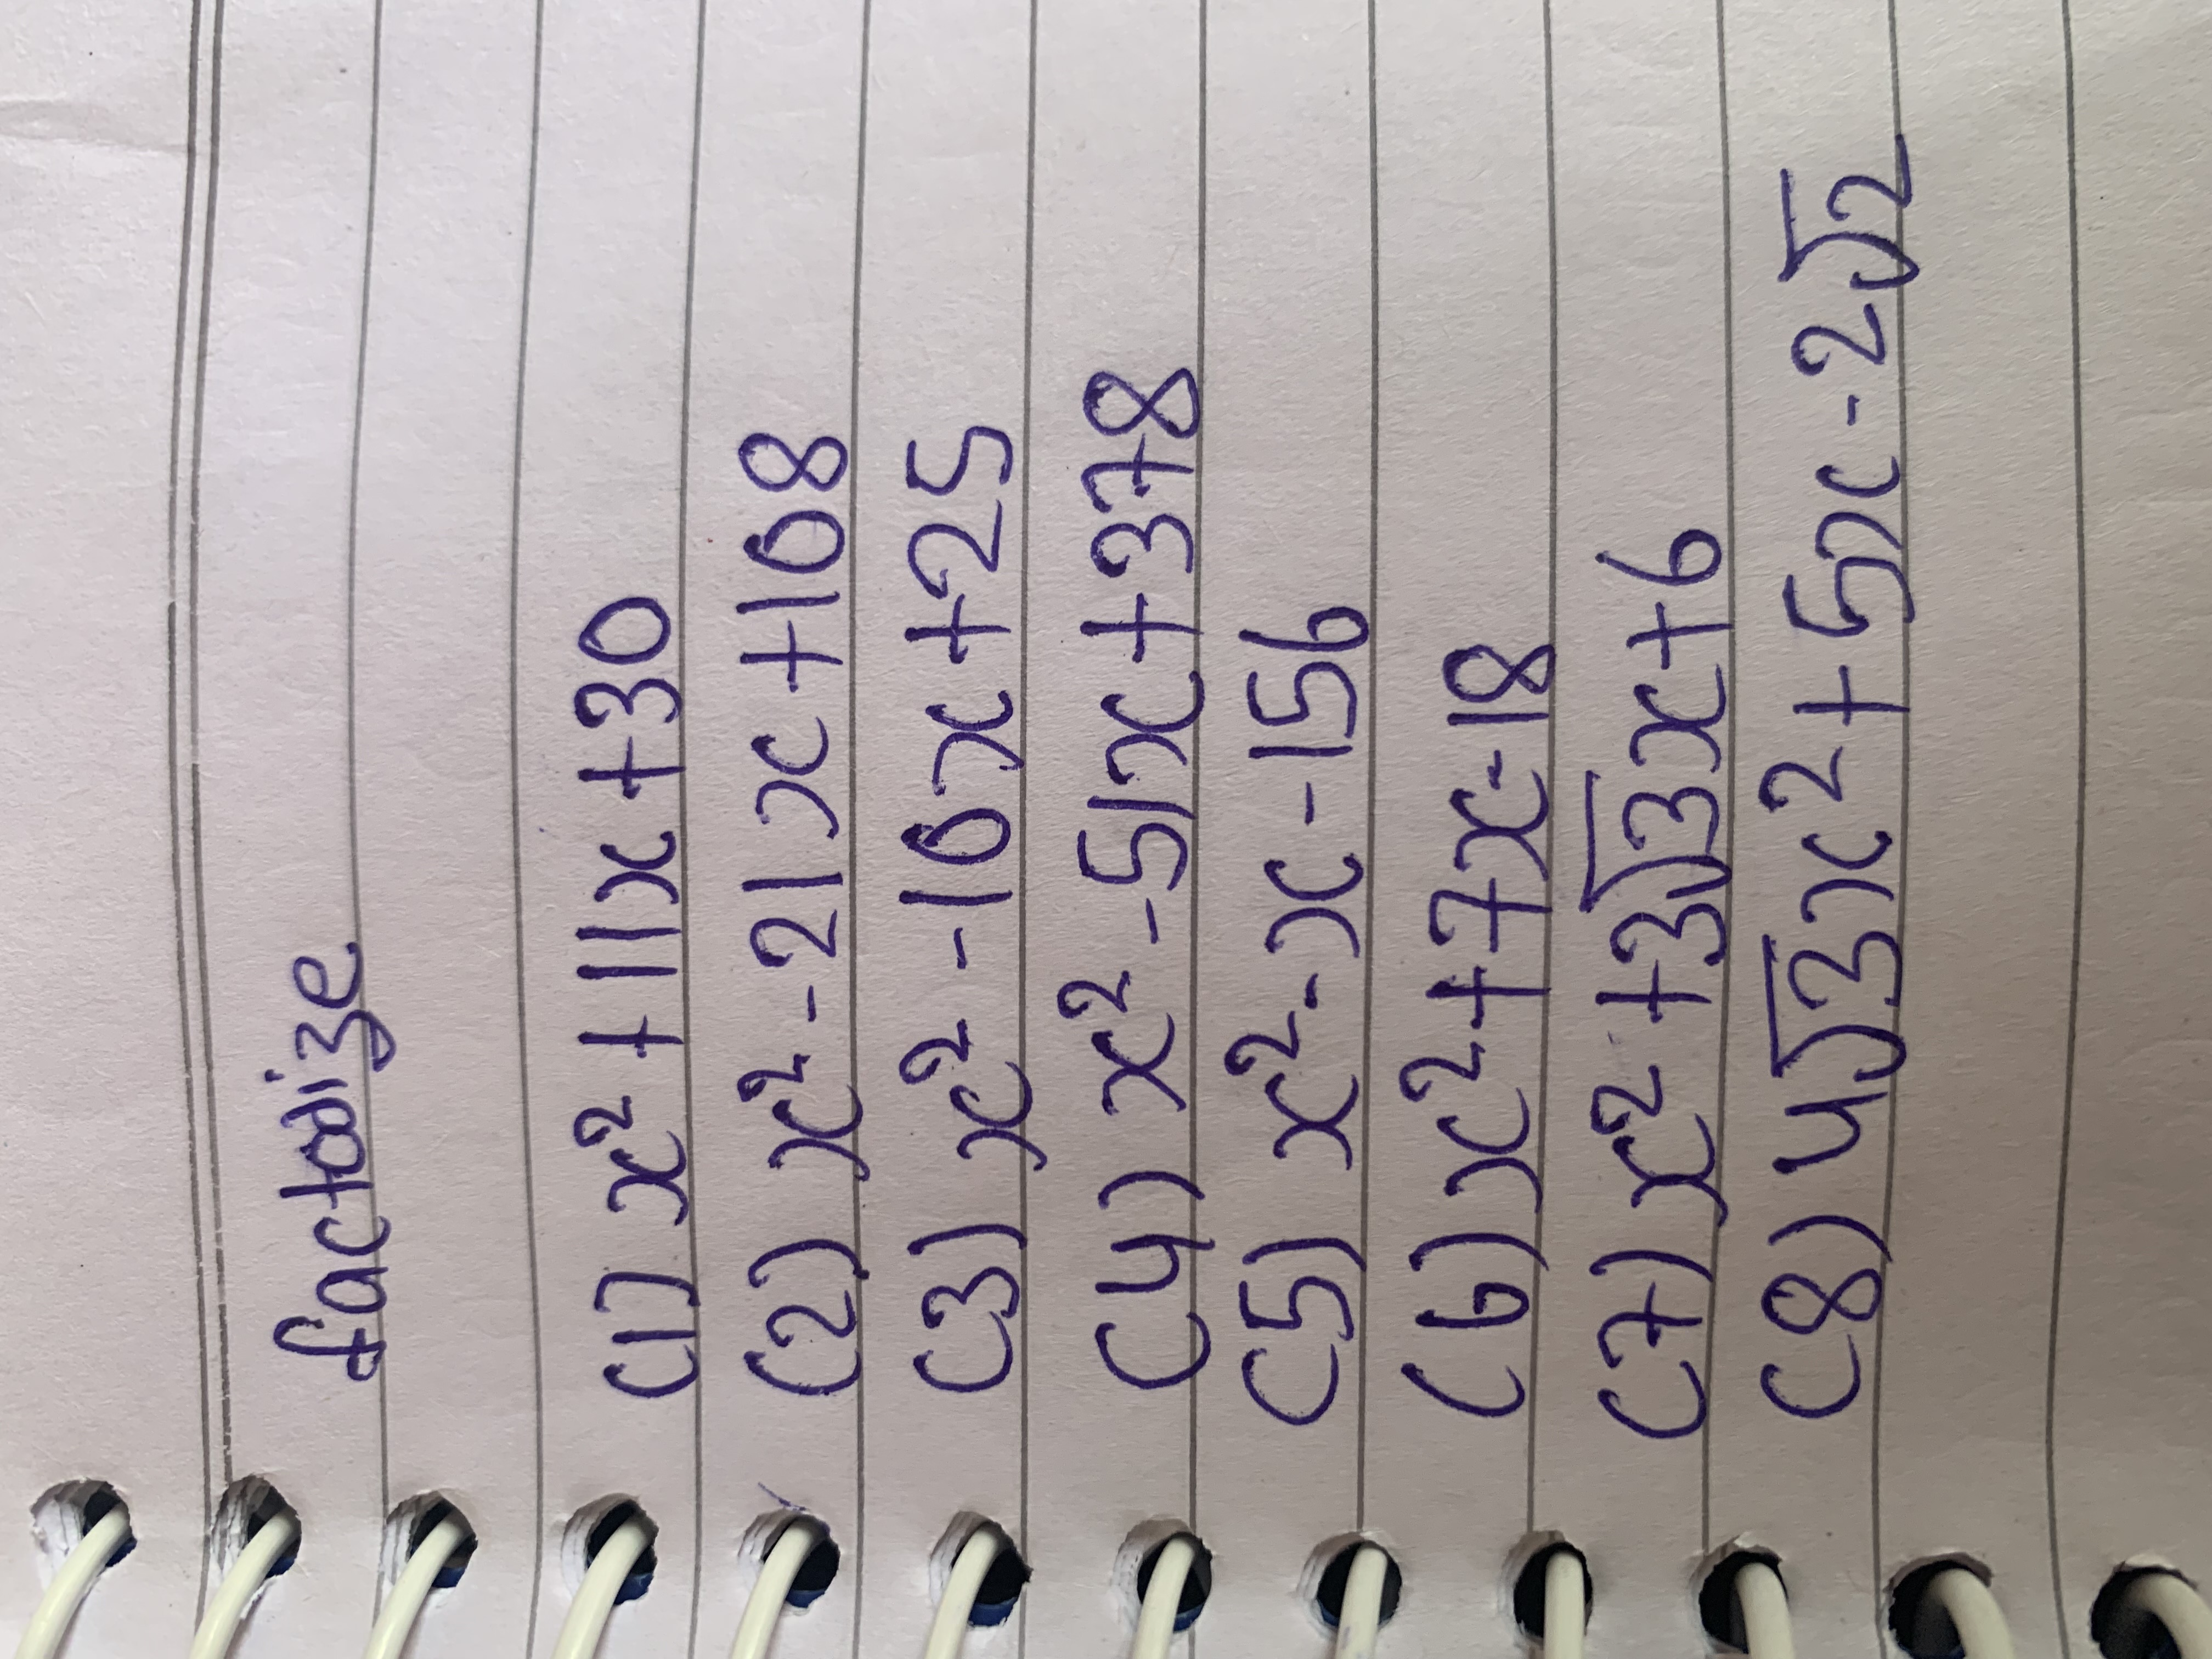 factorize
(1) x² + 11x + 30
(2) x² - 21x + 108
(3) x² - 10x + 25
(4) x² - 51x + 378
(5) x² - x - 156
(6) x² + 7x - 18
(7) x² + 3√3x + 6
(8) 4√3x² + 5x - 2√2